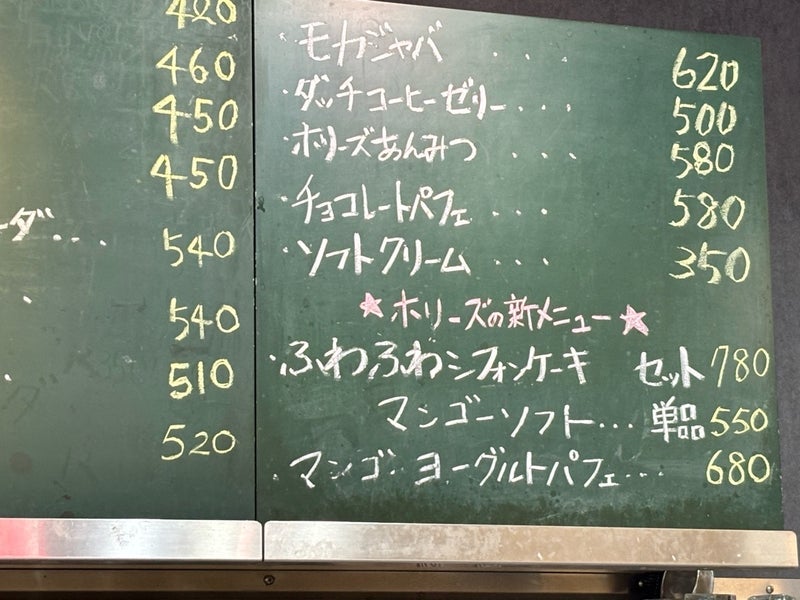 420
460
450
450
ーダ...
540
540
510
520
・モカジャバ ... 620
・ダッチコーヒーゼリー... 500
・ホリーズあんみつ ... 580
・チョコレートパフェ ... 580
・ソフトクリーム ... 350
★ホリーズの新メニュー★
・ふわふわシフォンケーキ セット780
マンゴーソフト... 単品550
・マンゴ ヨーグルトパフェ... 680